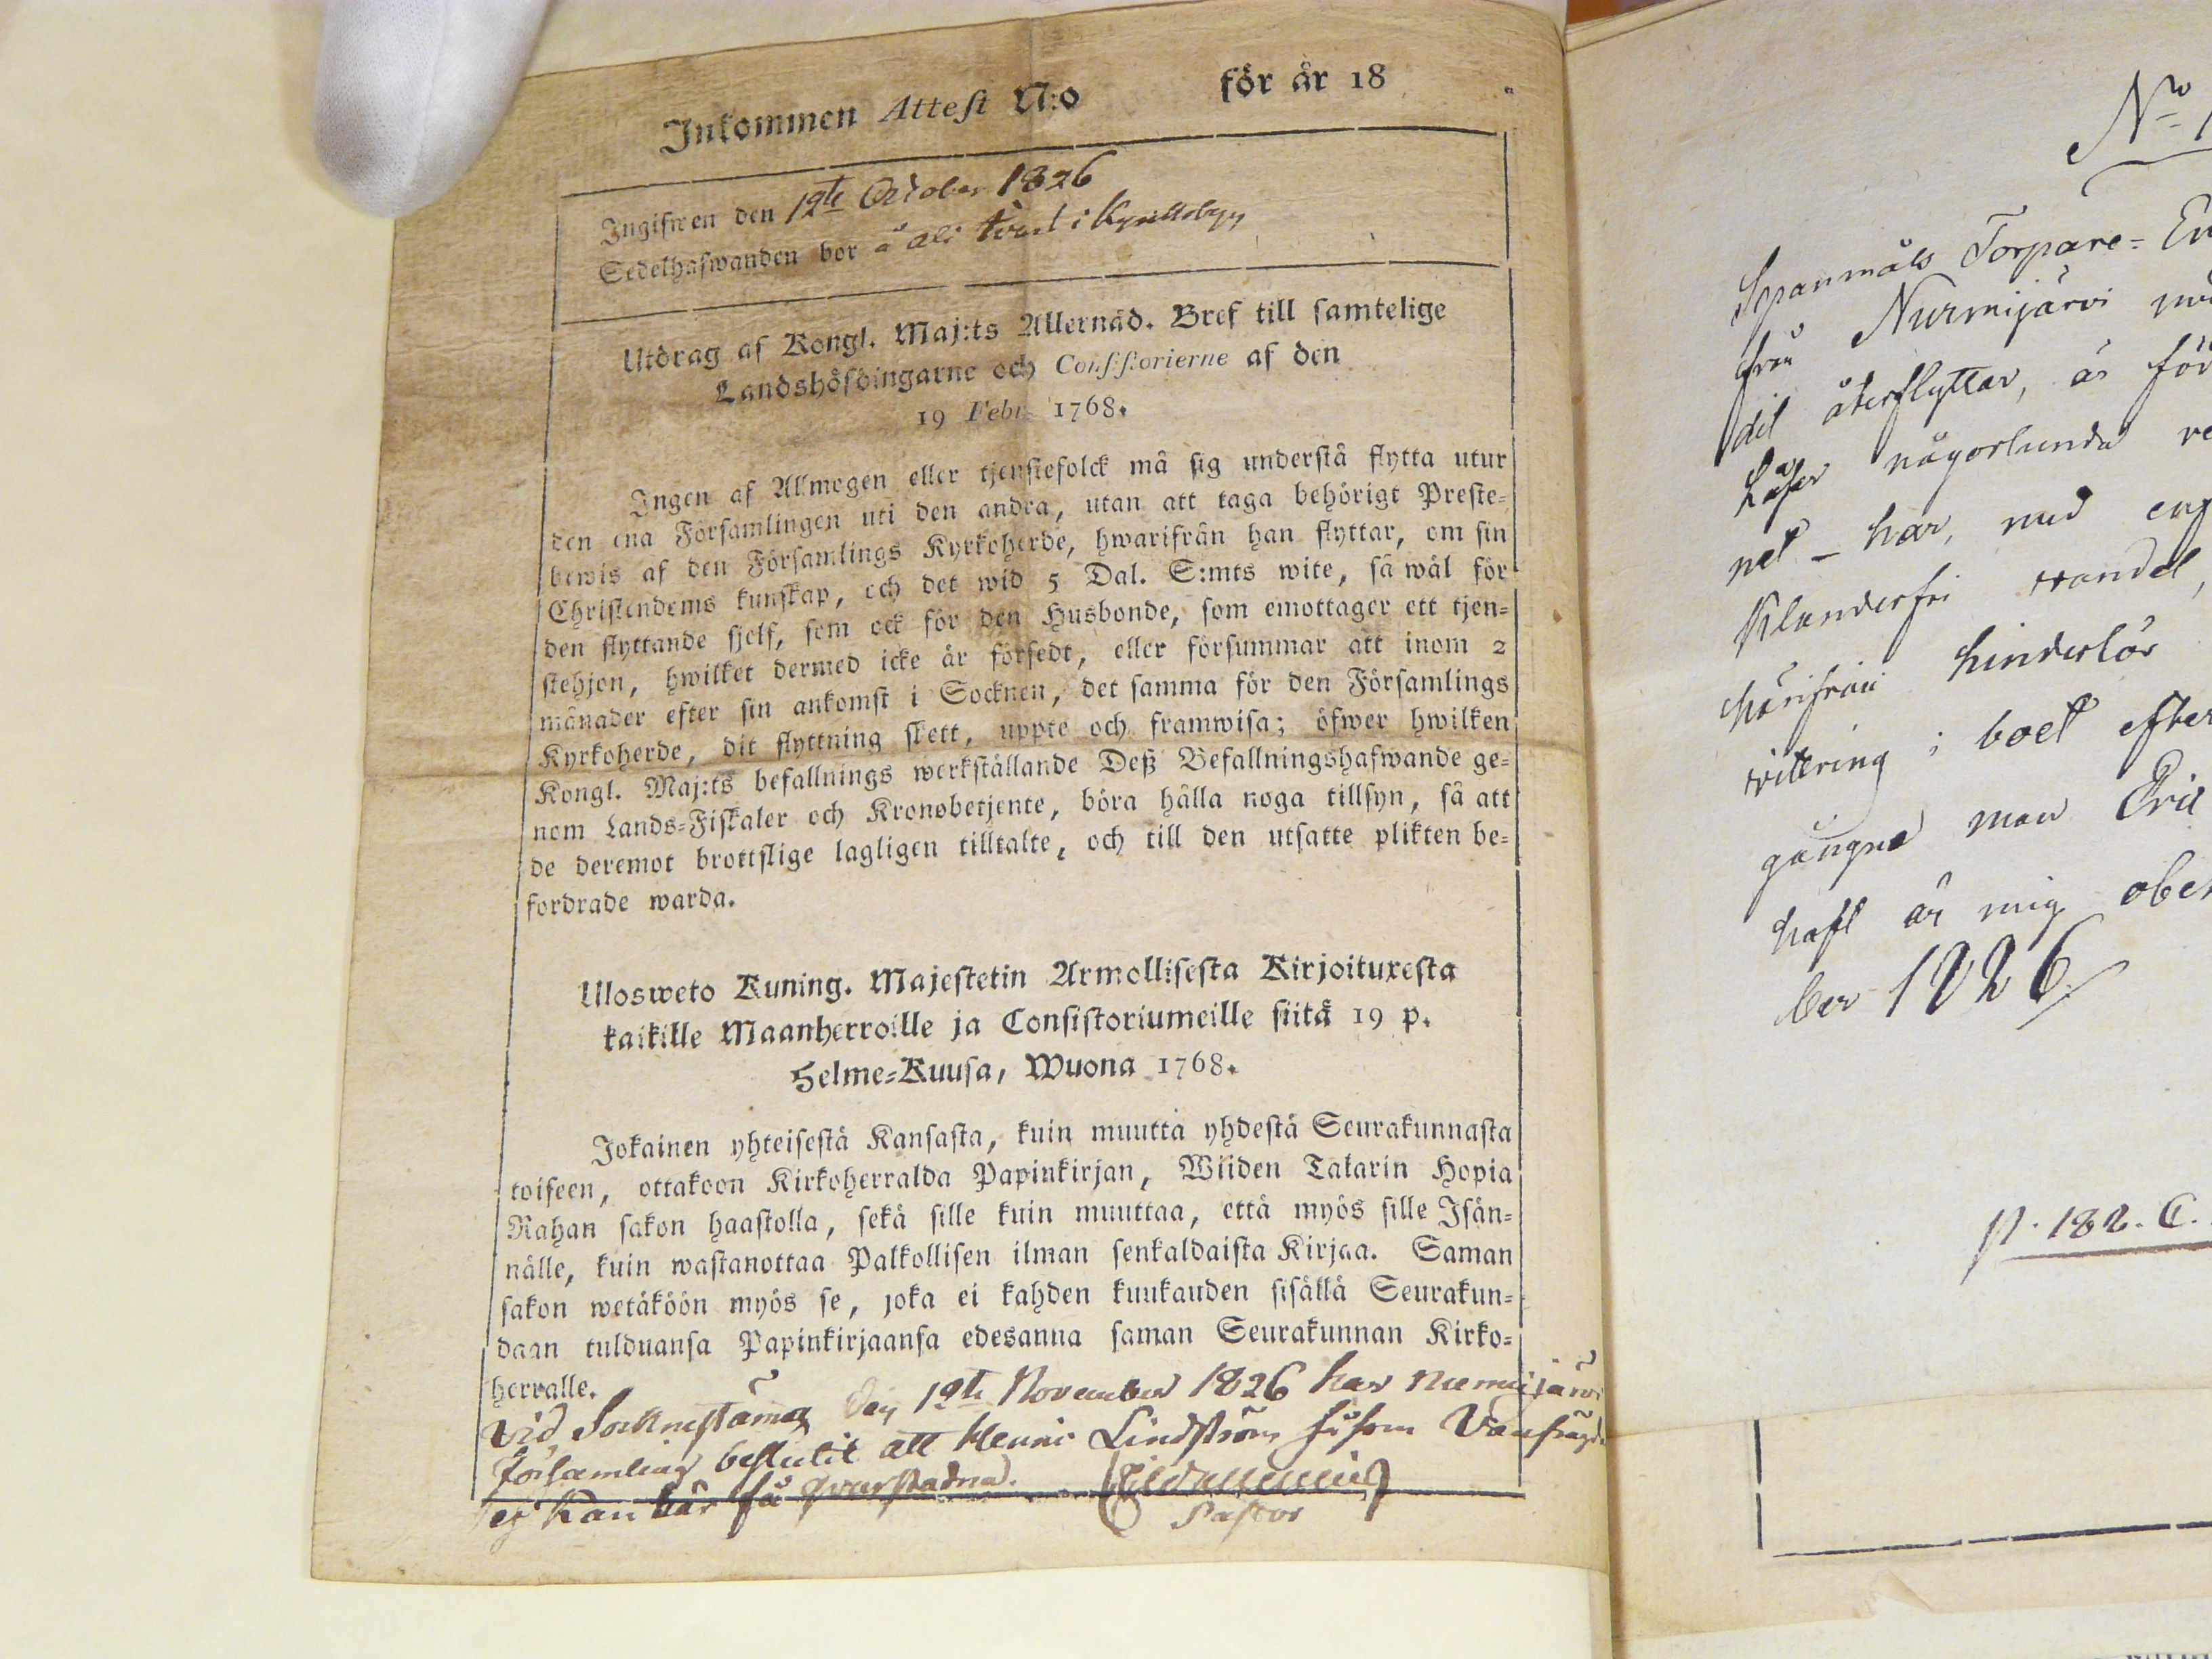 Inkommen Attest N:o för år 18
Ingifwen den 12te October 1826
Sedelhafwanden bor å Ali i
Utdrag af Kongl. Maj:ts Allernåd. Bref till samtelige
Landshöfdingarne och Consistorierne af den
19 Febr. 1768.
Ingen af Allmogen eller tjenstefolck må sig understå flytta utur
den ena Församlingen uti den andra, utan att taga behörigt Preste-
bewis af den Församlings Kyrkoherde, hwarifrån han flyttar, om sin
Christendoms kunskap, och det wid 5 Dal. S:mts wite, så wäl för
den flyttande sjelf, som ock för den Husbonde, som emottager ett tjen-
stehjon, hwilket dermed icke är försedt, eller försummar att inom 2
månader efter sin ankomst i Socknen, det samma för den Församlings
Kyrkoherde, dit flyttning skett, uppte och framwisa; öfwer hwilken
Kongl. Maj:ts befallnings werkställande Deß Befallningshafwande ge-
nom Lands-Fiskaler och Kronobetjente, böra hålla noga tillsyn, så att
de deremot brottslige lagligen tilltalte, och till den utsatte plikten be-
fordrade warda.
Ulosweto Kuning. Majestetin Armollisesta Kirjoituxesta
kaikille Maanherroille ja Consistoriumeille siitä 19 p.
Helme-Kuusa, Wuona 1768.
Jokainen yhteisestä Kansasta, kuin muutta yhdestä Seurakunnasta
toiseen, ottakoon Kirkoherralda Papinkirjan, Wiiden Talarin Hopia
Rahan sakon haastolla, sekä sille kuin muuttaa, että myös sille Isän-
nälle, kuin wastanottaa Palkollisen ilman senkaldaista Kirjaa. Saman
sakon wetäköön myös se, joka ei kahden kuukauden sisällä Seurakun-
daan tulduansa Papinkirjaansa edesanna saman Seurakunnan Kirko-
herralle.
Vid Sockne stämma den 12te November 1826 har Nurmijärvi
församling beslutit att Henric Lindström såsom Vanfrägd
ej kan här få qvarstadna.
Pastor
No
Spanmåls Torpare-
från Nurmijärvi
dit återflyttar, är
Läser någorlunda
net - har, med
Klanderfri vandel,
härifrån hinderlös
vittring i boet efter
gångna man Eric
haft är mig
ber 1826
p. 182. C.